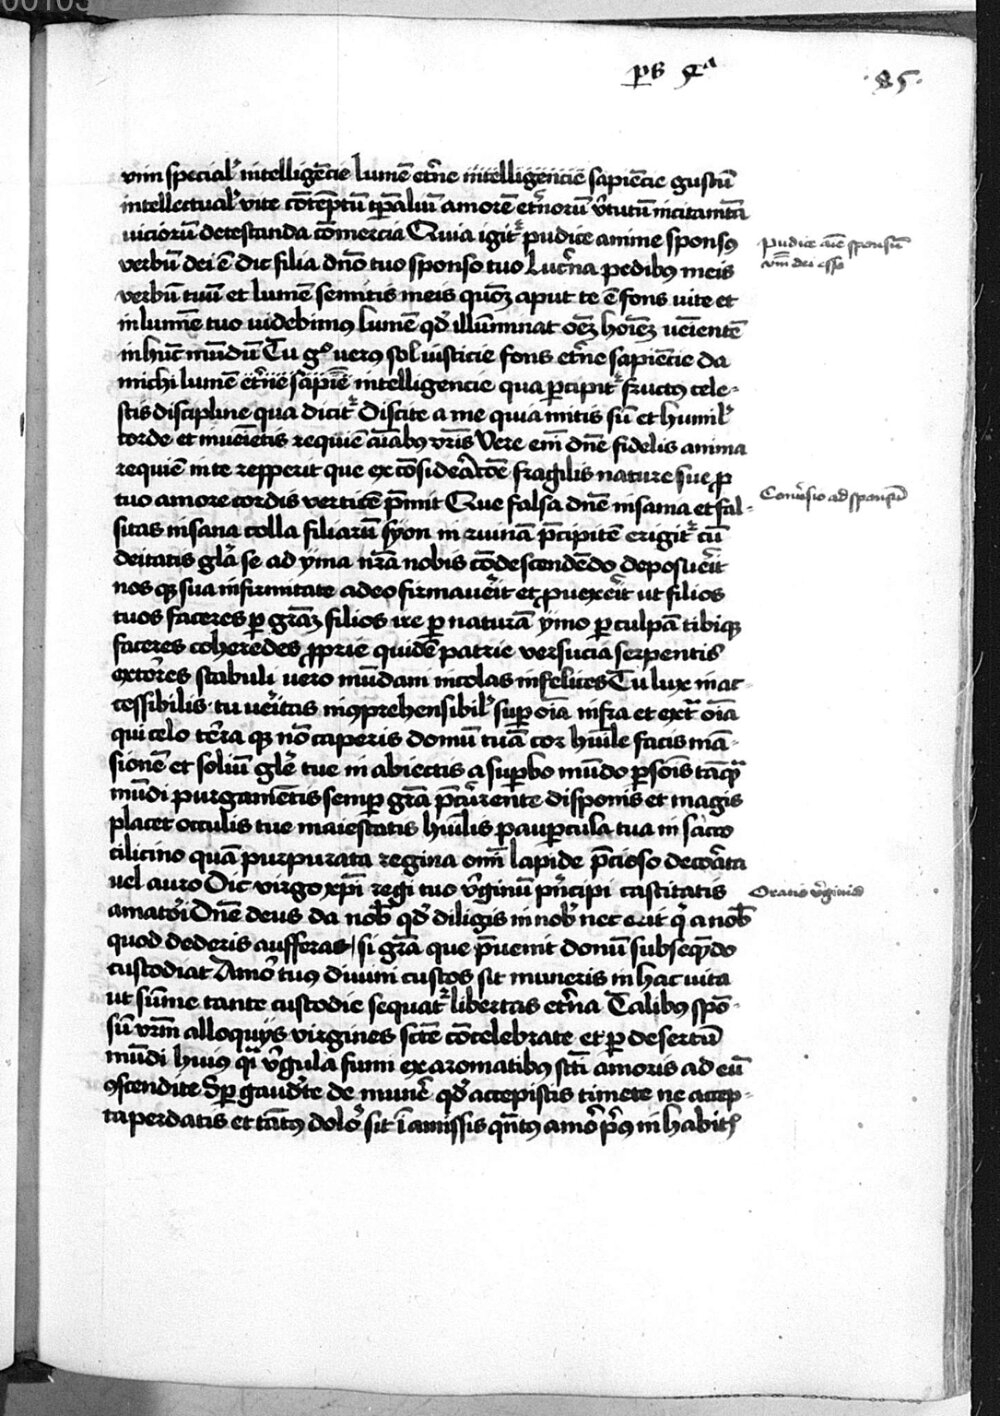 ps 5ᵃ
·85·
vnn special' intelligēcie lumē et'ne intelligēncie sapiēcie gustū
intellectual' vite cōtēptū tpāliū amorē et'norū v'tutū incitamēta
viciorū detestanda cōmercia Quia igit' pudice anime sponsus
verbū dei ē dic filia dn̄o tuo sponso tuo Luc'na pedibus meis
verbū tuū et lumē semitis meis qm̄ aput te ē fons uite et
in lumīe tuo uidebimus lumē qd' illumīnat oēz hoīez ueniente
in hūc mūdū Tu g° uerus sol iusticie fons et'ne sapiēcie da
michi lumē et'ne sapiē intelligencie qua p̄cipit' fructus cele-
stis discipline qua dicit' Discite a me quia mitis sū et humil'
corde et inueietis requiē aīabus vris Vere em̄ dn̄e fidelis anima
requiē in te repperit que ex cōsideratōe fragilis nature sue p
tuo amore cordis verticē p̄mit Que falsa dn̄e insania et fal-
sitas insana colla filiarū syon in ruinā p̄cipitē erigit' cū
deitatis gl'a se ad yma nr̄a nobis cōdescendēdo deposuerit
nos qz sua infirmitate adeo firmauerit et puexerit ut filios
tuos faceres p gr̄az filios ire p naturā ymo p culpā tibiqz
faceres coheredes p̄prie quidē patrie versucia serpentis
extorres stabuli uero mūdani incolas infelices Tu lux inac-
cessibilis tu ueritas incp̄rehensibil' sup oīa infra et ext' oīa
qui celo terra qz nō caperis domū tuā cor hūile facis mā-
sionē et soliū gl'e tue in abiectis a supbo mūdo psonis tāq̄
mūdi purgamētis semp gr̄a p̄currente disponis et magis
placet occulis tue maiestatis hūilis paupcula tua in sacco
cilicino quā purpurata regina om̄i lapide p̄cioso decorata
uel auro Dic virgo xp̄i regi tuo v'ginū pn̄cipi castitatis
amatori Dn̄e deus da nob' qd' diligis in nob' nec erit q' a nob'
quod dederis aufferas si gr̄a que p̄uenit donū subseq̄ndo
custodiat Amor tuus diuini custos sit muneris in hac uita
ut sūme tante custodie sequat' libertas et'na Talibus spō-
sū vr̄m alloquijs virgines sctē cōcelebrate et p desertū
mūdi huius q̄ v'gula fumi ex aromatibus scti amoris ad eū
ꝯscendite Sp gaud'te de muner' qd' accepistis timete ne accep-
ta perdatis et tātus dolor sit ī amissis qn̄tus amor p'us in habit'
Pudice aīe sponsū
vm̄ dei esse
Conuersio ad sponsū
Oratio v'ginis